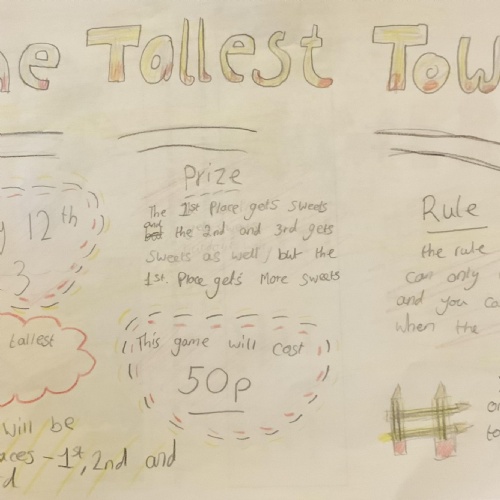 he Tallest Tow
y 12th
3
tallest
will be
aces - 1st, 2nd and
rd
Prize
The 1st Place gets sweets
and the 2nd and 3rd gets
sweets as well, but the
1st Place gets More sweets
This game will cost
50p
Rule
the rule
can only
and you ca
when the
or
to